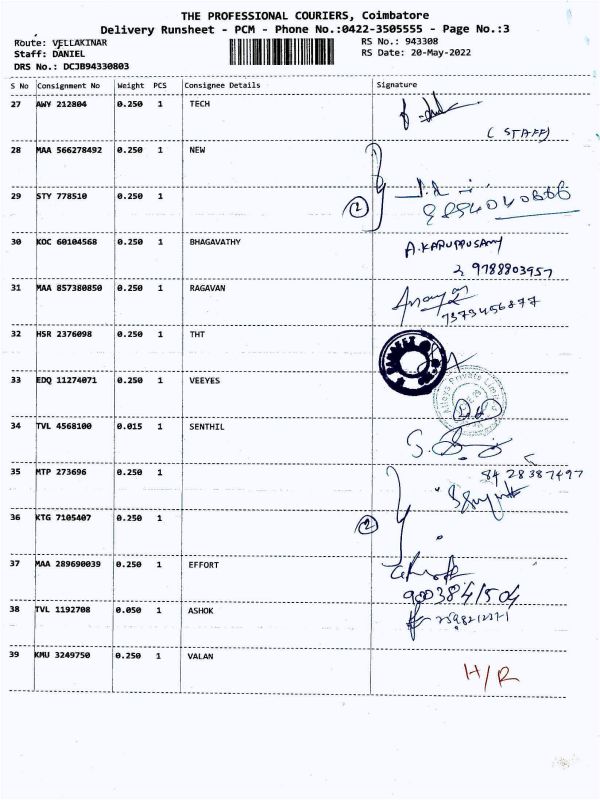 THE PROFESSIONAL COURIERS, Coimbatore
Delivery Runsheet - PCM - Phone No.:0422-3505555 - Page No.:3
Route: VELLAKINAR
RS No.: 943308
Staff: DANIEL
RS Date: 20-May-2022
DRS No.: DCJB94330803
S No Consignment No Weight PCS Consignee Details Signature
27 AWY 212804 0.250 1 TECH
( STAFF)
28 MAA 566278492 0.250 1 NEW
29 STY 778510 0.250 1
2
30 KOC 60104568 0.250 1 BHAGAVATHY A.KARUPPUSAMY
9788803957
31 MAA 857380850 0.250 1 RAGAVAN
7373456877
32 HSR 2376098 0.250 1 THT
33 EDQ 11274071 0.250 1 VEEYES
Alloys Private Limited
34 TVL 4568100 0.015 1 SENTHIL
35 MTP 273696 0.250 1 84 28387497
36 KTG 7105407 0.250 1
2
37 MAA 289690039 0.250 1 EFFORT
9003841504
38 TVL 1192708 0.050 1 ASHOK
39 KMU 3249750 0.250 1 VALAN
H/R